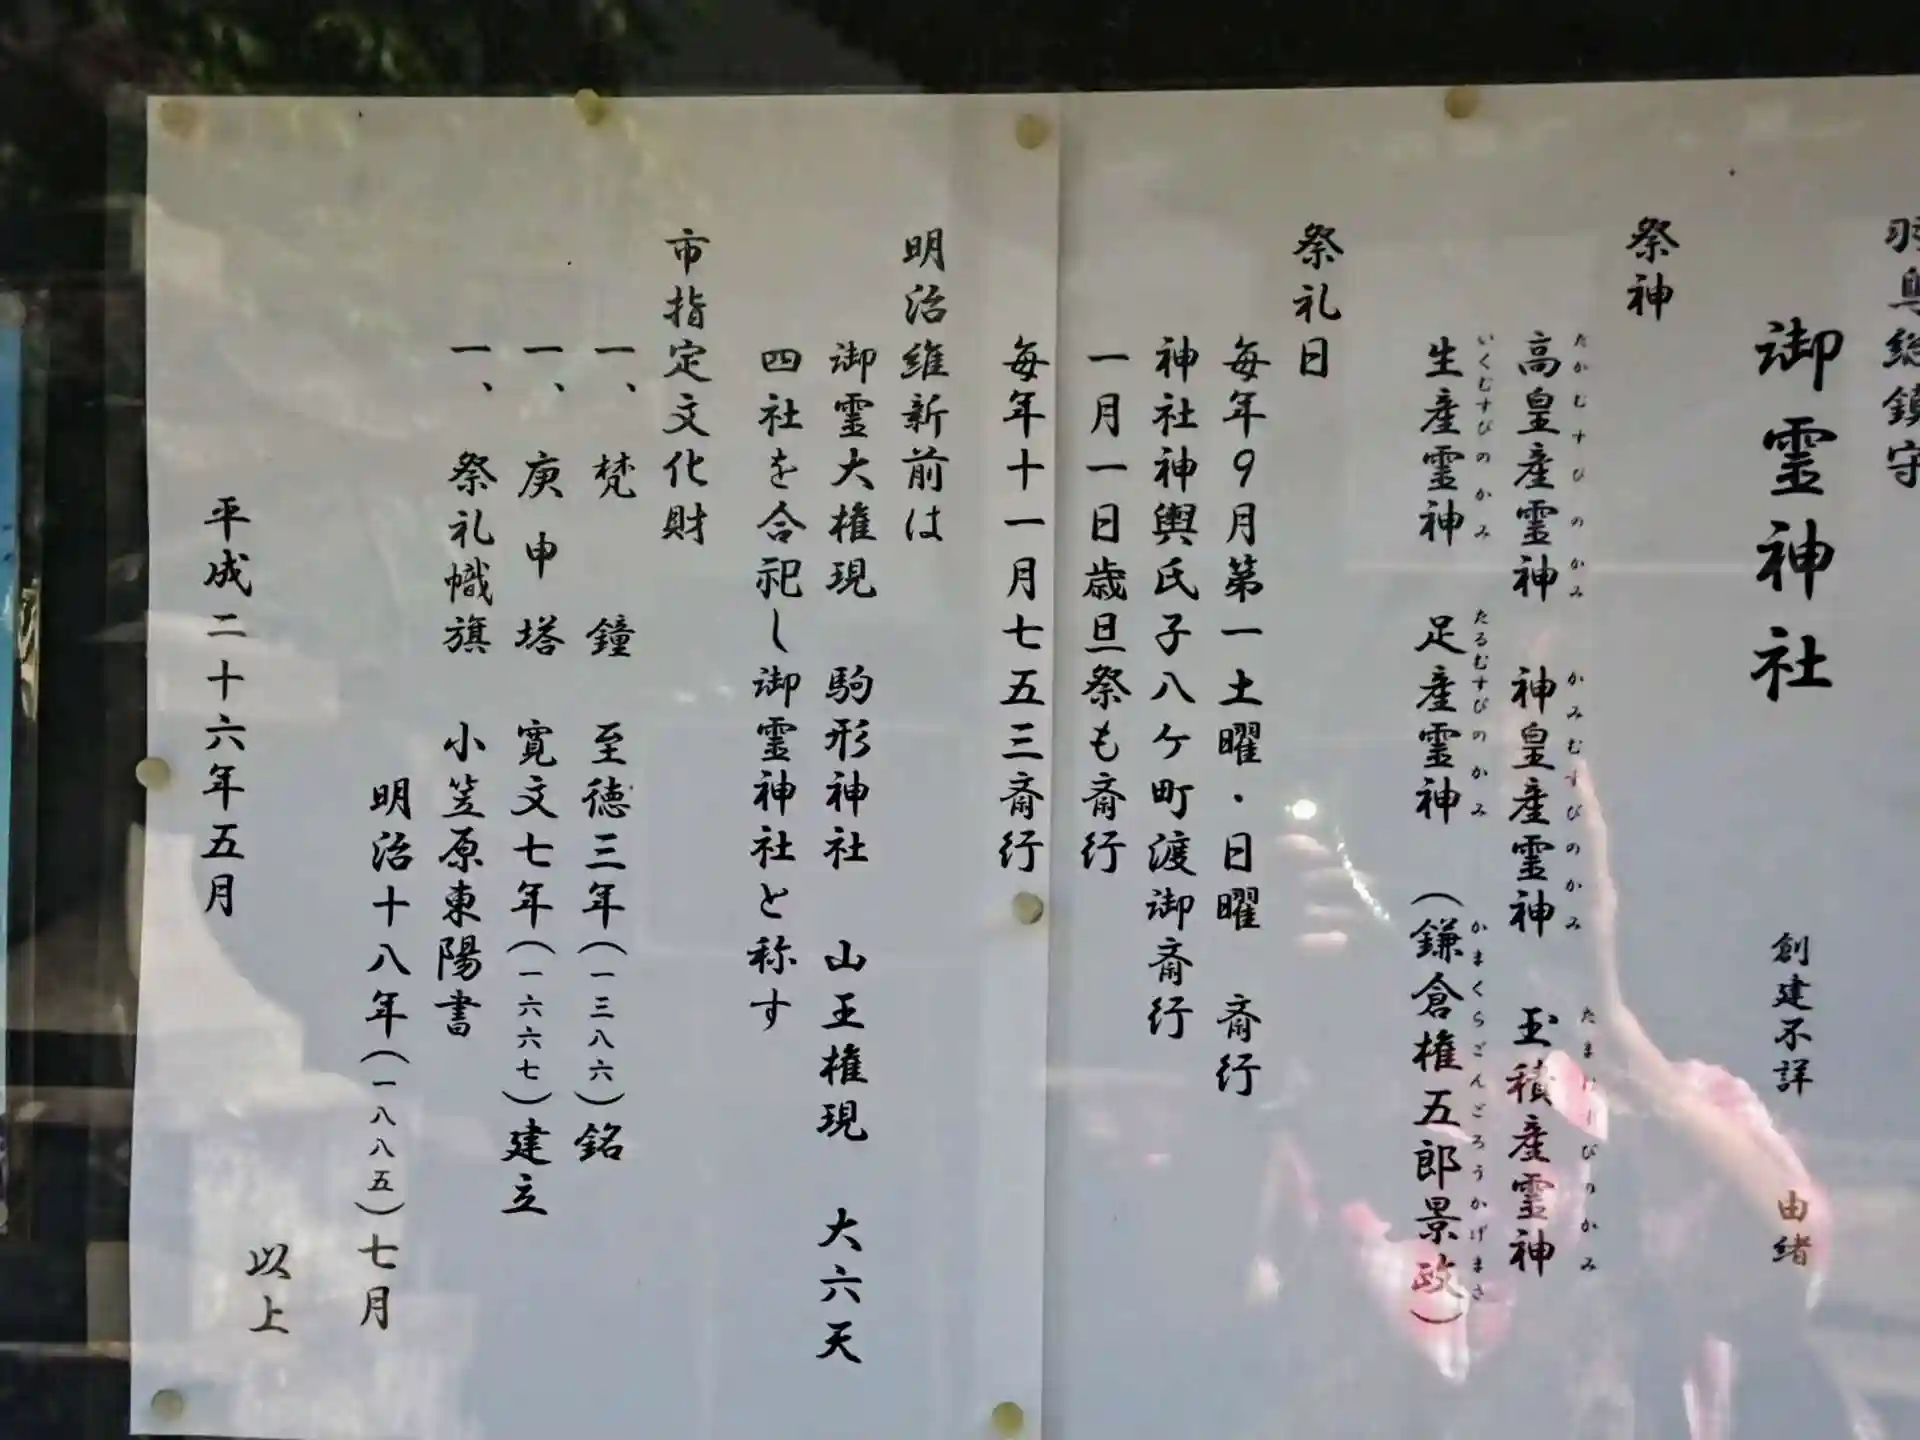 羽鳥総鎮守
御霊神社　創建不詳　由緒
祭神
高皇産霊神　神皇産霊神　玉積産霊神
たかむすびのかみ　かみむすびのかみ　たまむすびのかみ
生産霊神　足産霊神　（鎌倉権五郎景政）
いくむすびのかみ　たるむすびのかみ　かまくらごんごろうかげまさ
祭礼日
毎年9月第一土曜・日曜　斎行
神社神輿氏子八ケ町渡御斎行
一月一日歳旦祭も斎行
毎年十一月七五三斎行
明治維新前は
御霊大権現　駒形神社　山王権現　大六天
四社を合祀し御霊神社と称す
市指定文化財
一、梵鐘　至徳三年（一三八六）銘
一、庚申塔　寛文七年（一六六七）建立
一、祭礼幟旗　小笠原東陽書
明治十八年（一八八五）七月
以上
平成二十六年五月